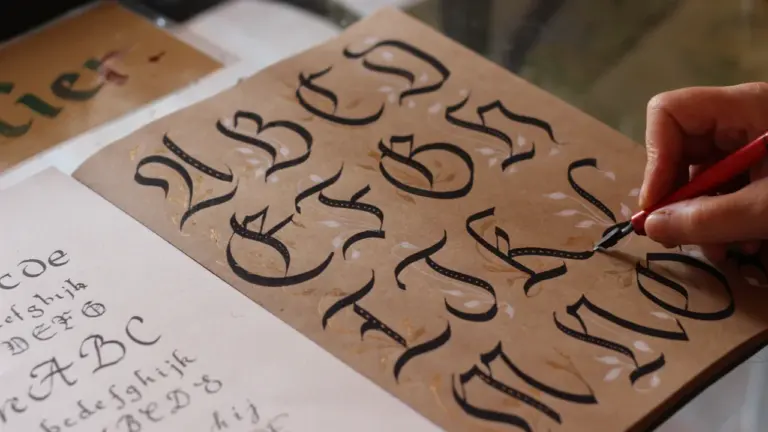 lier
A B C D
E F G H
I J K L
M N O
cDe
efghijk
DEFG
ABC
bcdefghijk
BCDE
hij